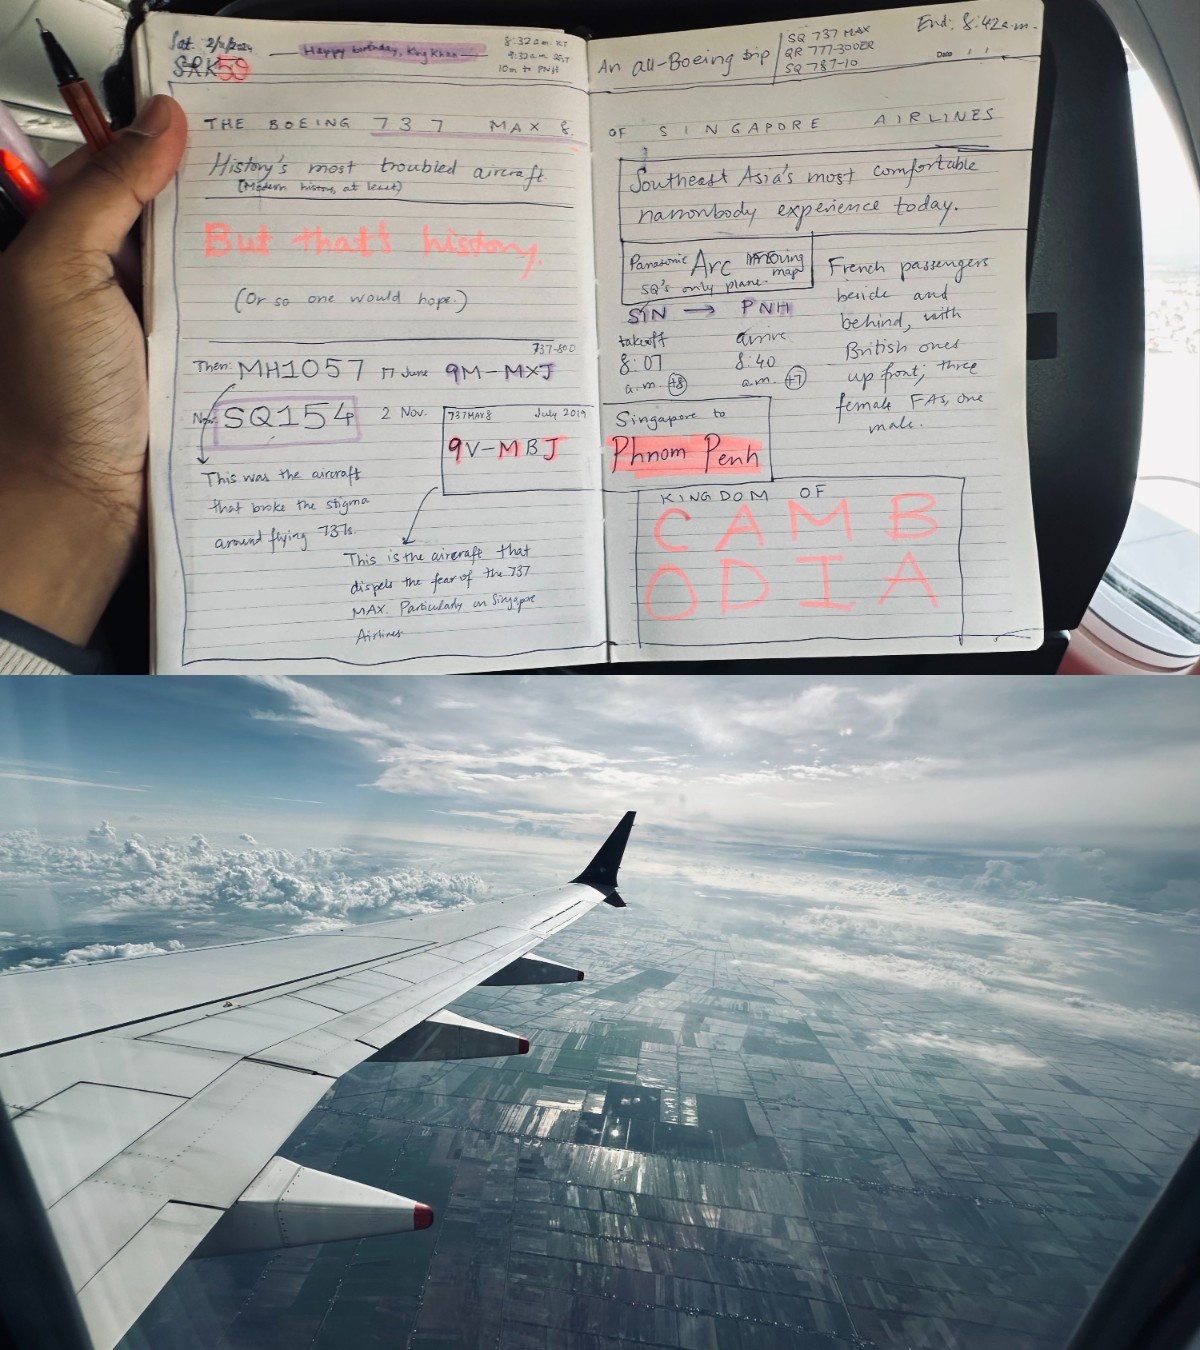 Sat. 2/11/2024
SRK59
Happy birthday, King Khan
8:32 a.m. KT
9:32 a.m. SGT
10m to PNH
THE BOEING 737 MAX 8
History's most troubled aircraft
(Modern history, at least)
But that's history.
(Or so one would hope.)
737-800
Then: MH1057 17 June 9M-MXJ
Now: SQ154 2 Nov.
737 MAX 8 July 2019
9V-MBJ
This was the aircraft
that broke the stigma
around flying 737s.
This is the aircraft that
dispels the fear of the 737
MAX. Particularly on Singapore
Airlines.
An all-Boeing trip
SQ 737 MAX
QR 777-300ER
SQ 787-10
End: 8:42 a.m.
Date / /
OF SINGAPORE AIRLINES
Southeast Asia's most comfortable
narrowbody experience today.
Panasonic Arc moving
map
SQ's only plane.
SIN → PNH
takeoff arrive
8:07 8:40
a.m. +8 a.m. +7
French passengers
beside and
behind, with
British ones
up front; three
female FAs, one
male.
Singapore to
Phnom Penh
KINGDOM OF
CAMB
ODIA